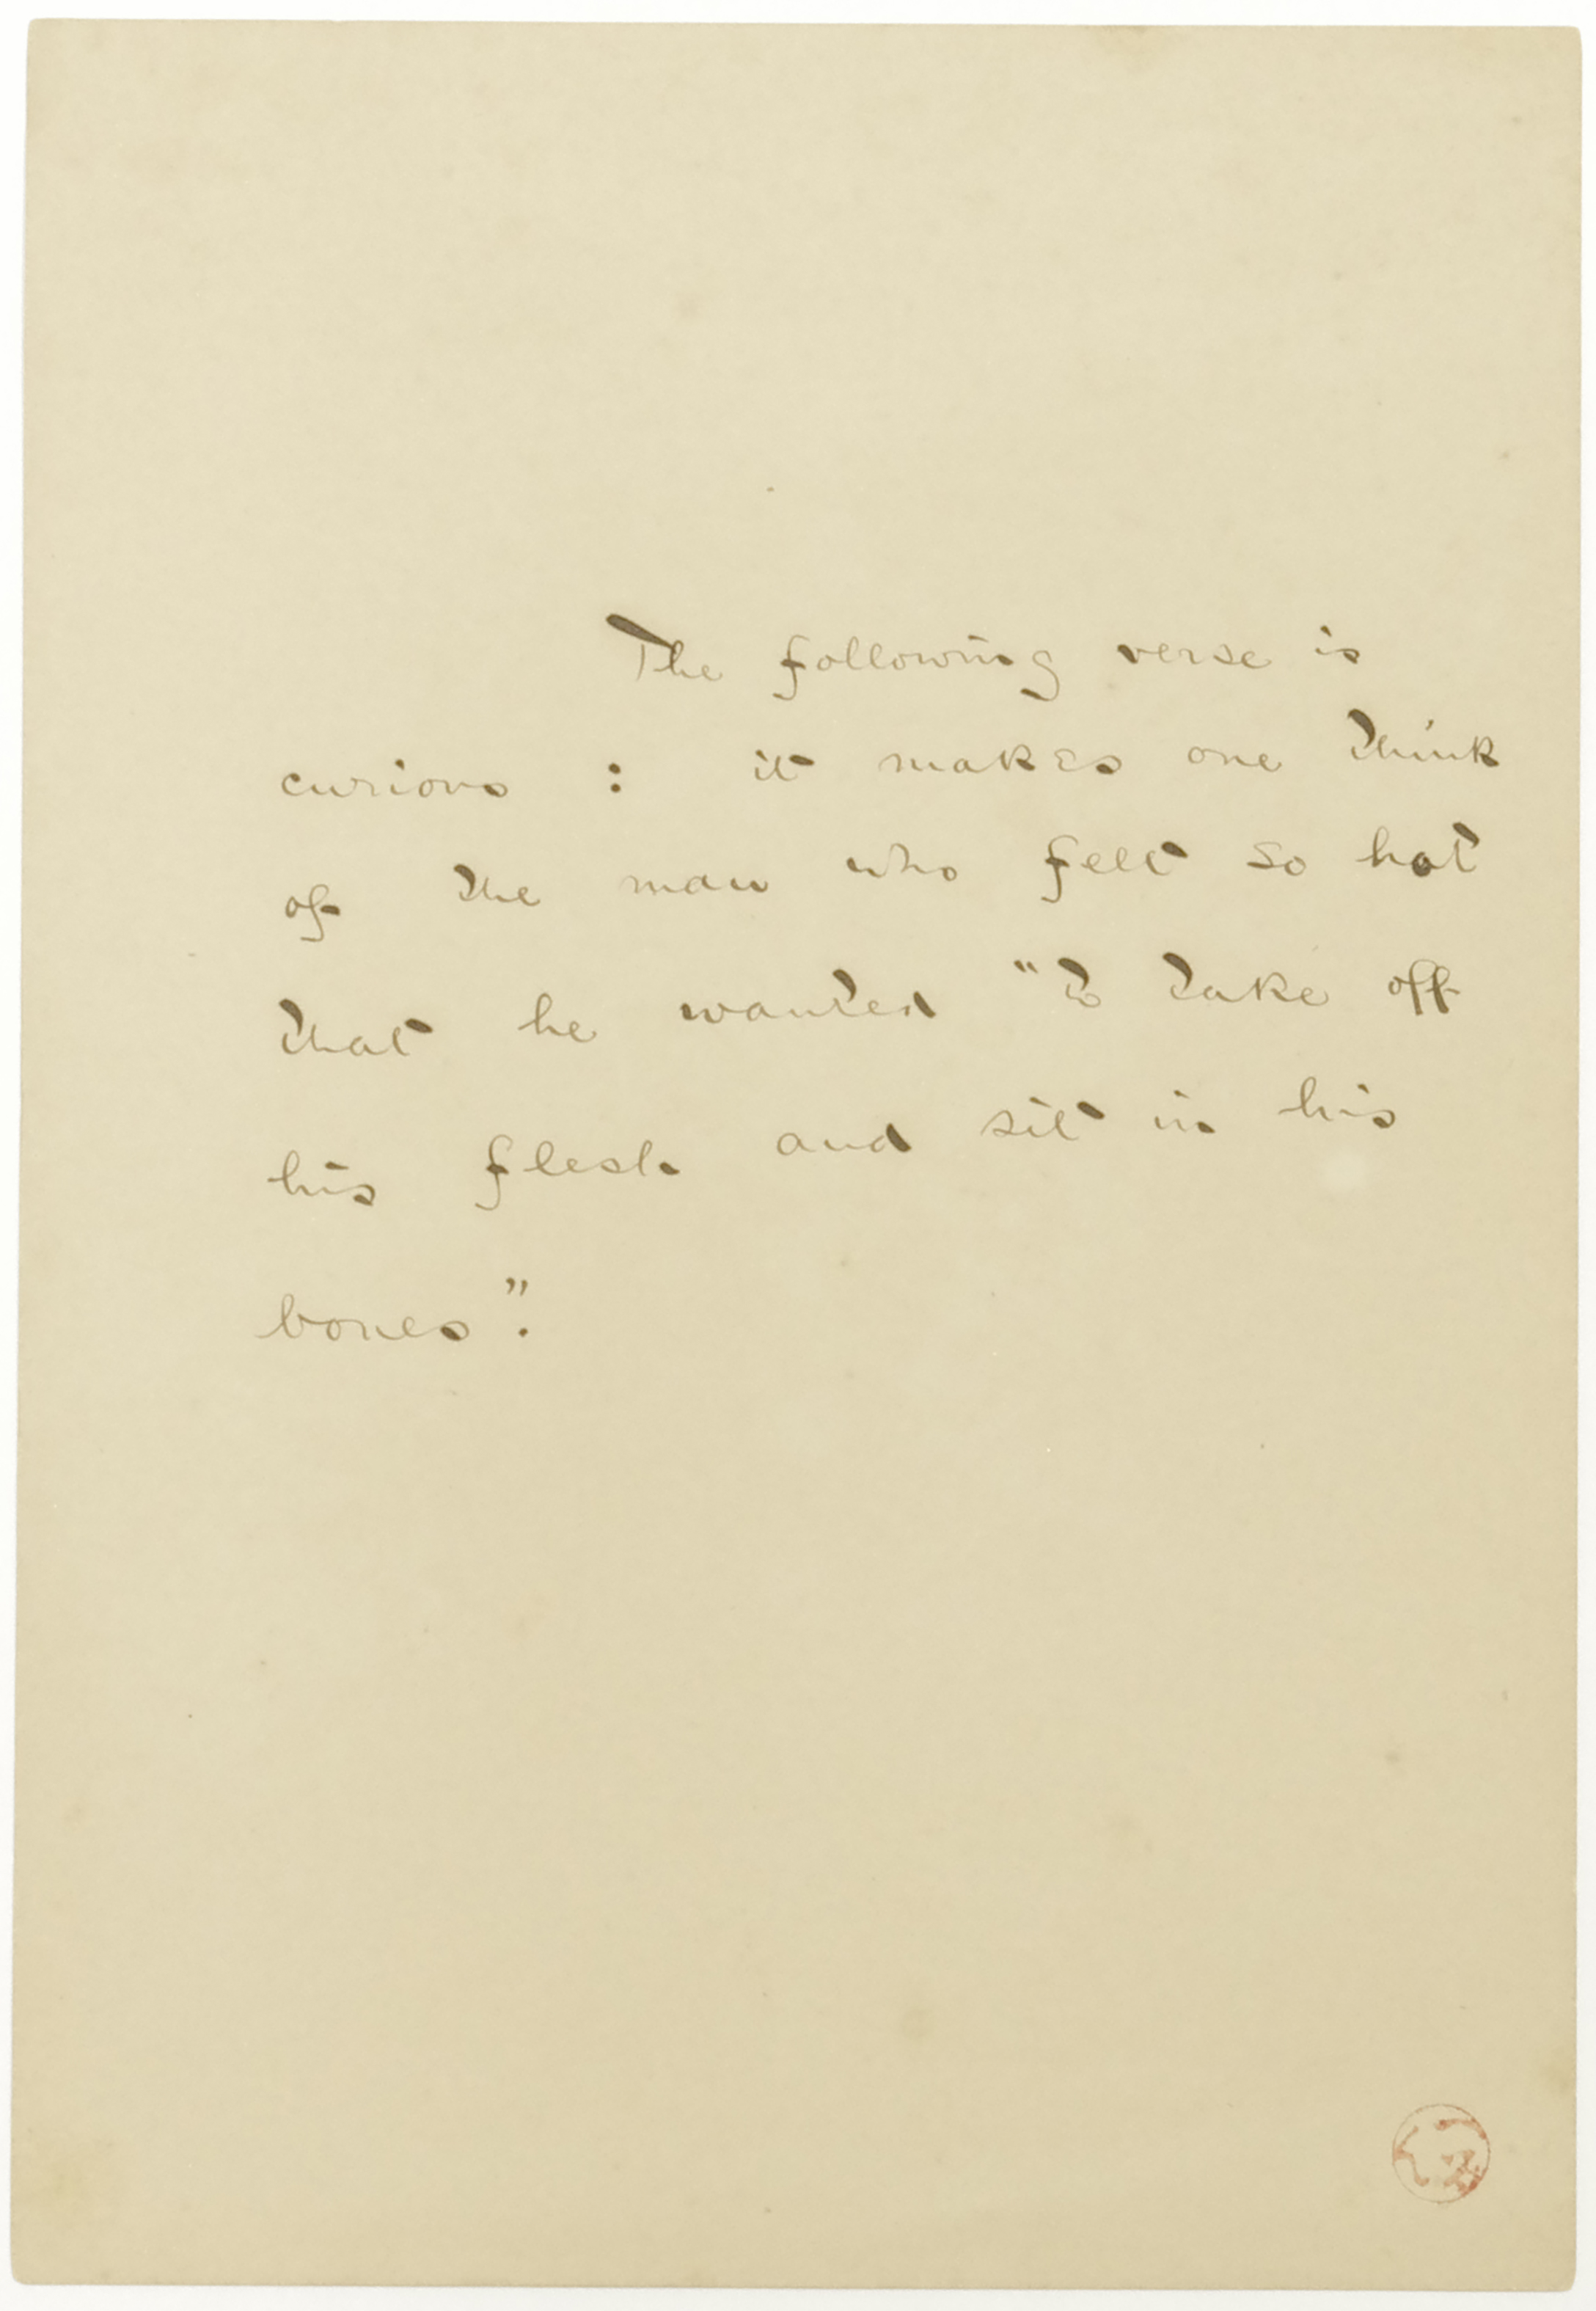 The following verse is
curious : it makes one think
of the man who felt so hot
that he wanted "to take off
his flesh and sit in his
bones".